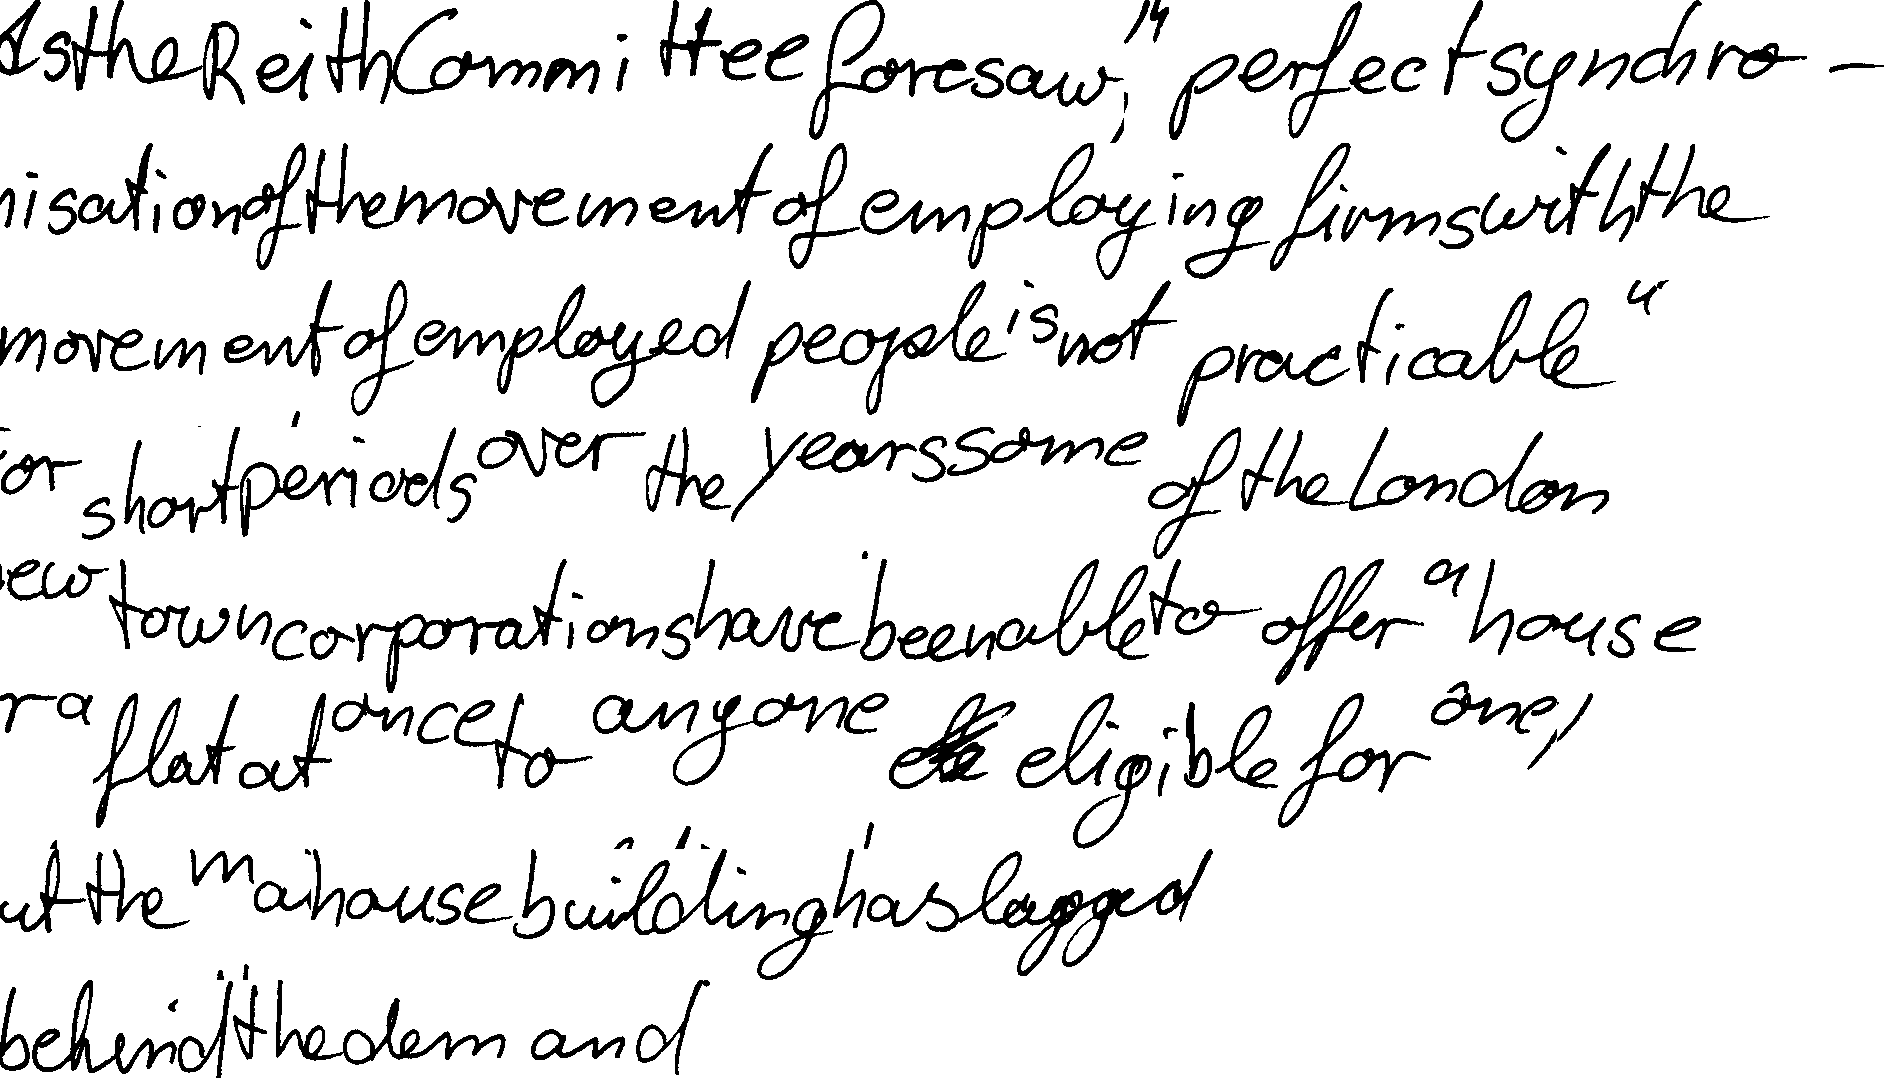 As the Reith Committee foresaw, "perfect synchro-
nisation of the movement of employing firms with the
movement of employed people is not practicable"
For short periods over the years some of the London
ew town corporations have been able to offer a house
r a flat at once to anyone eligible for one,
ut the main house building has lagged
behind the demand